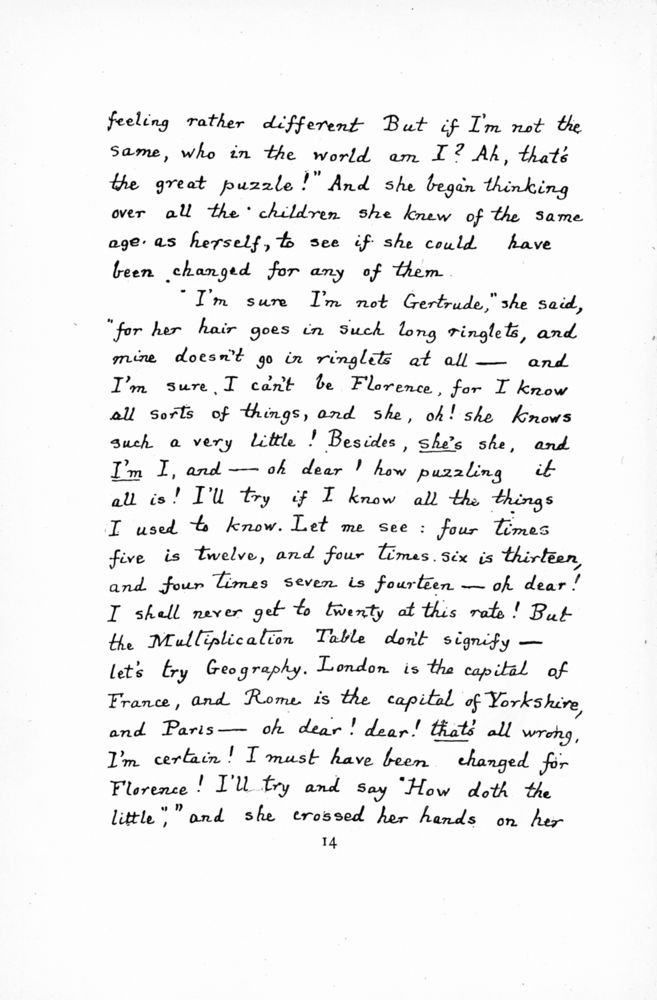 feeling rather different But if I'm not the
same, who in the world am I? Ah, that's
the great puzzle!" And she began thinking
over all the children she knew of the same
age as herself, to see if she could have
been changed for any of them.
"I'm sure I'm not Gertrude," she said,
"for her hair goes in such long ringlets, and
mine doesn't go in ringlets at all — and
I'm sure I can't be Florence, for I know
all sorts of things, and she, oh! she knows
such a very little! Besides, she's she, and
I'm I, and — oh dear! how puzzling it
all is! I'll try if I know all the things
I used to know. Let me see: four times
five is twelve, and four times six is thirteen,
and four times seven is fourteen — oh dear!
I shall never get to twenty at this rate! But
the Multiplication Table don't signify —
let's try Geography. London is the capital of
France, and Rome is the capital of Yorkshire,
and Paris — oh dear! dear! that's all wrong,
I'm certain! I must have been changed for
Florence! I'll try and say "How doth the
little"," and she crossed her hands on her
14